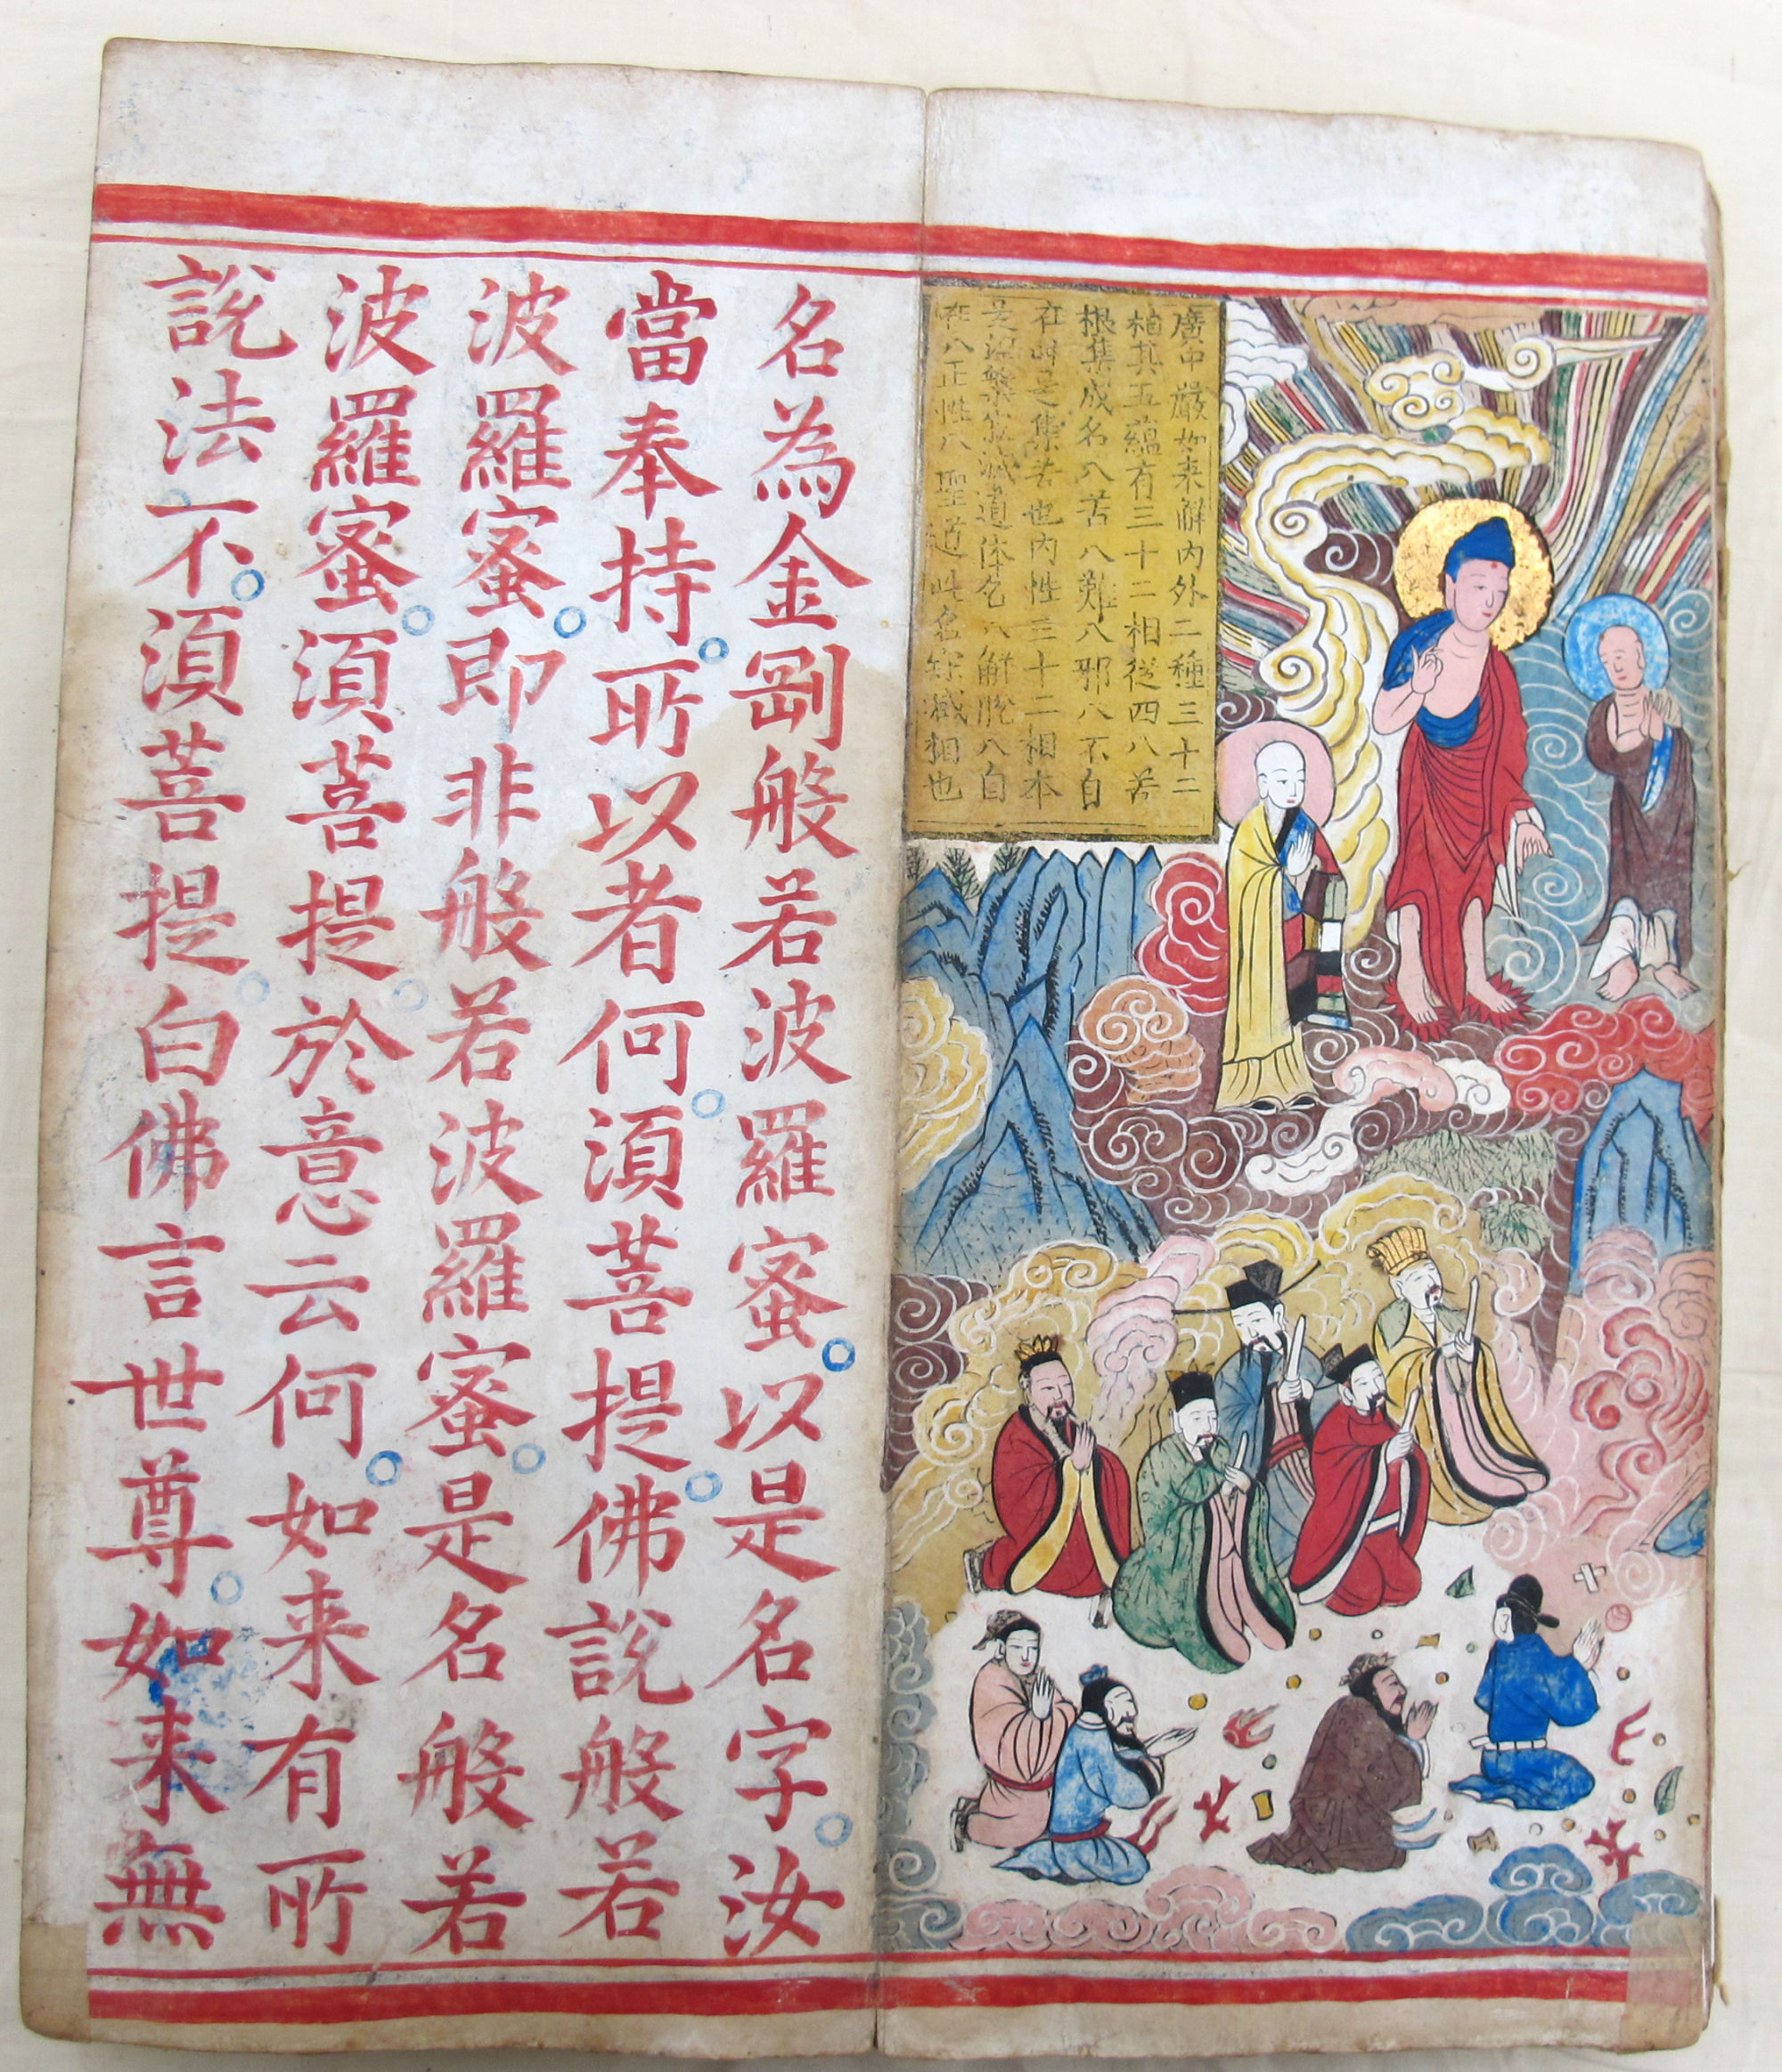 廣中嚴如来解内外二種三十二
相其五蘊有三十二相從四八苦
根集成名八苦八難八邪八不自
在此是集苦也内性三十二相本
是涅槃寂滅道体名八解脫八自
在八正性八聖道此名寂滅相也
名為金剛般若波羅蜜。以是名字。汝
當奉持。所以者何。須菩提。佛說般若
波羅蜜。即非般若波羅蜜。是名般若
波羅蜜。須菩提。於意云何。如来有所
說法不。須菩提。白佛言世尊。如来無